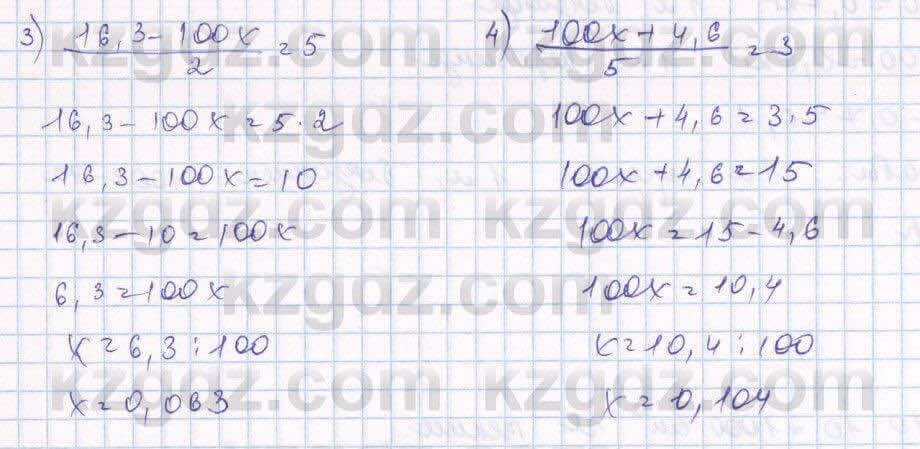 3) (16,3 - 100x)/2 = 5
16,3 - 100x = 5 · 2
16,3 - 100x = 10
16,3 - 10 = 100x
6,3 = 100x
x = 6,3 : 100
x = 0,063
4) (100x + 4,6)/5 = 3
100x + 4,6 = 3 · 5
100x + 4,6 = 15
100x = 15 - 4,6
100x = 10,4
x = 10,4 : 100
x = 0,104
kzgdz.com kzgdz.com
kzgdz.com kzgdz.com
kzgdz.com kzgdz.com
kzgdz.com kzgdz.com
kzgdz.com kzgdz.com